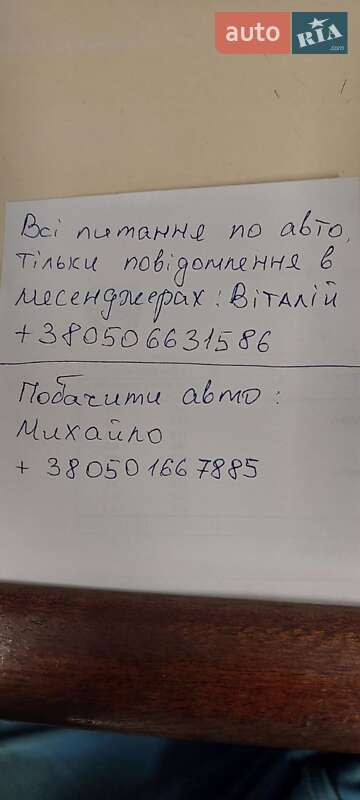 auto RIA.com
Всі питання по авто,
тільки повідомлення в
месенджерах: Віталій
+380506631586
Побачити авто:
Михайло
+380501667885